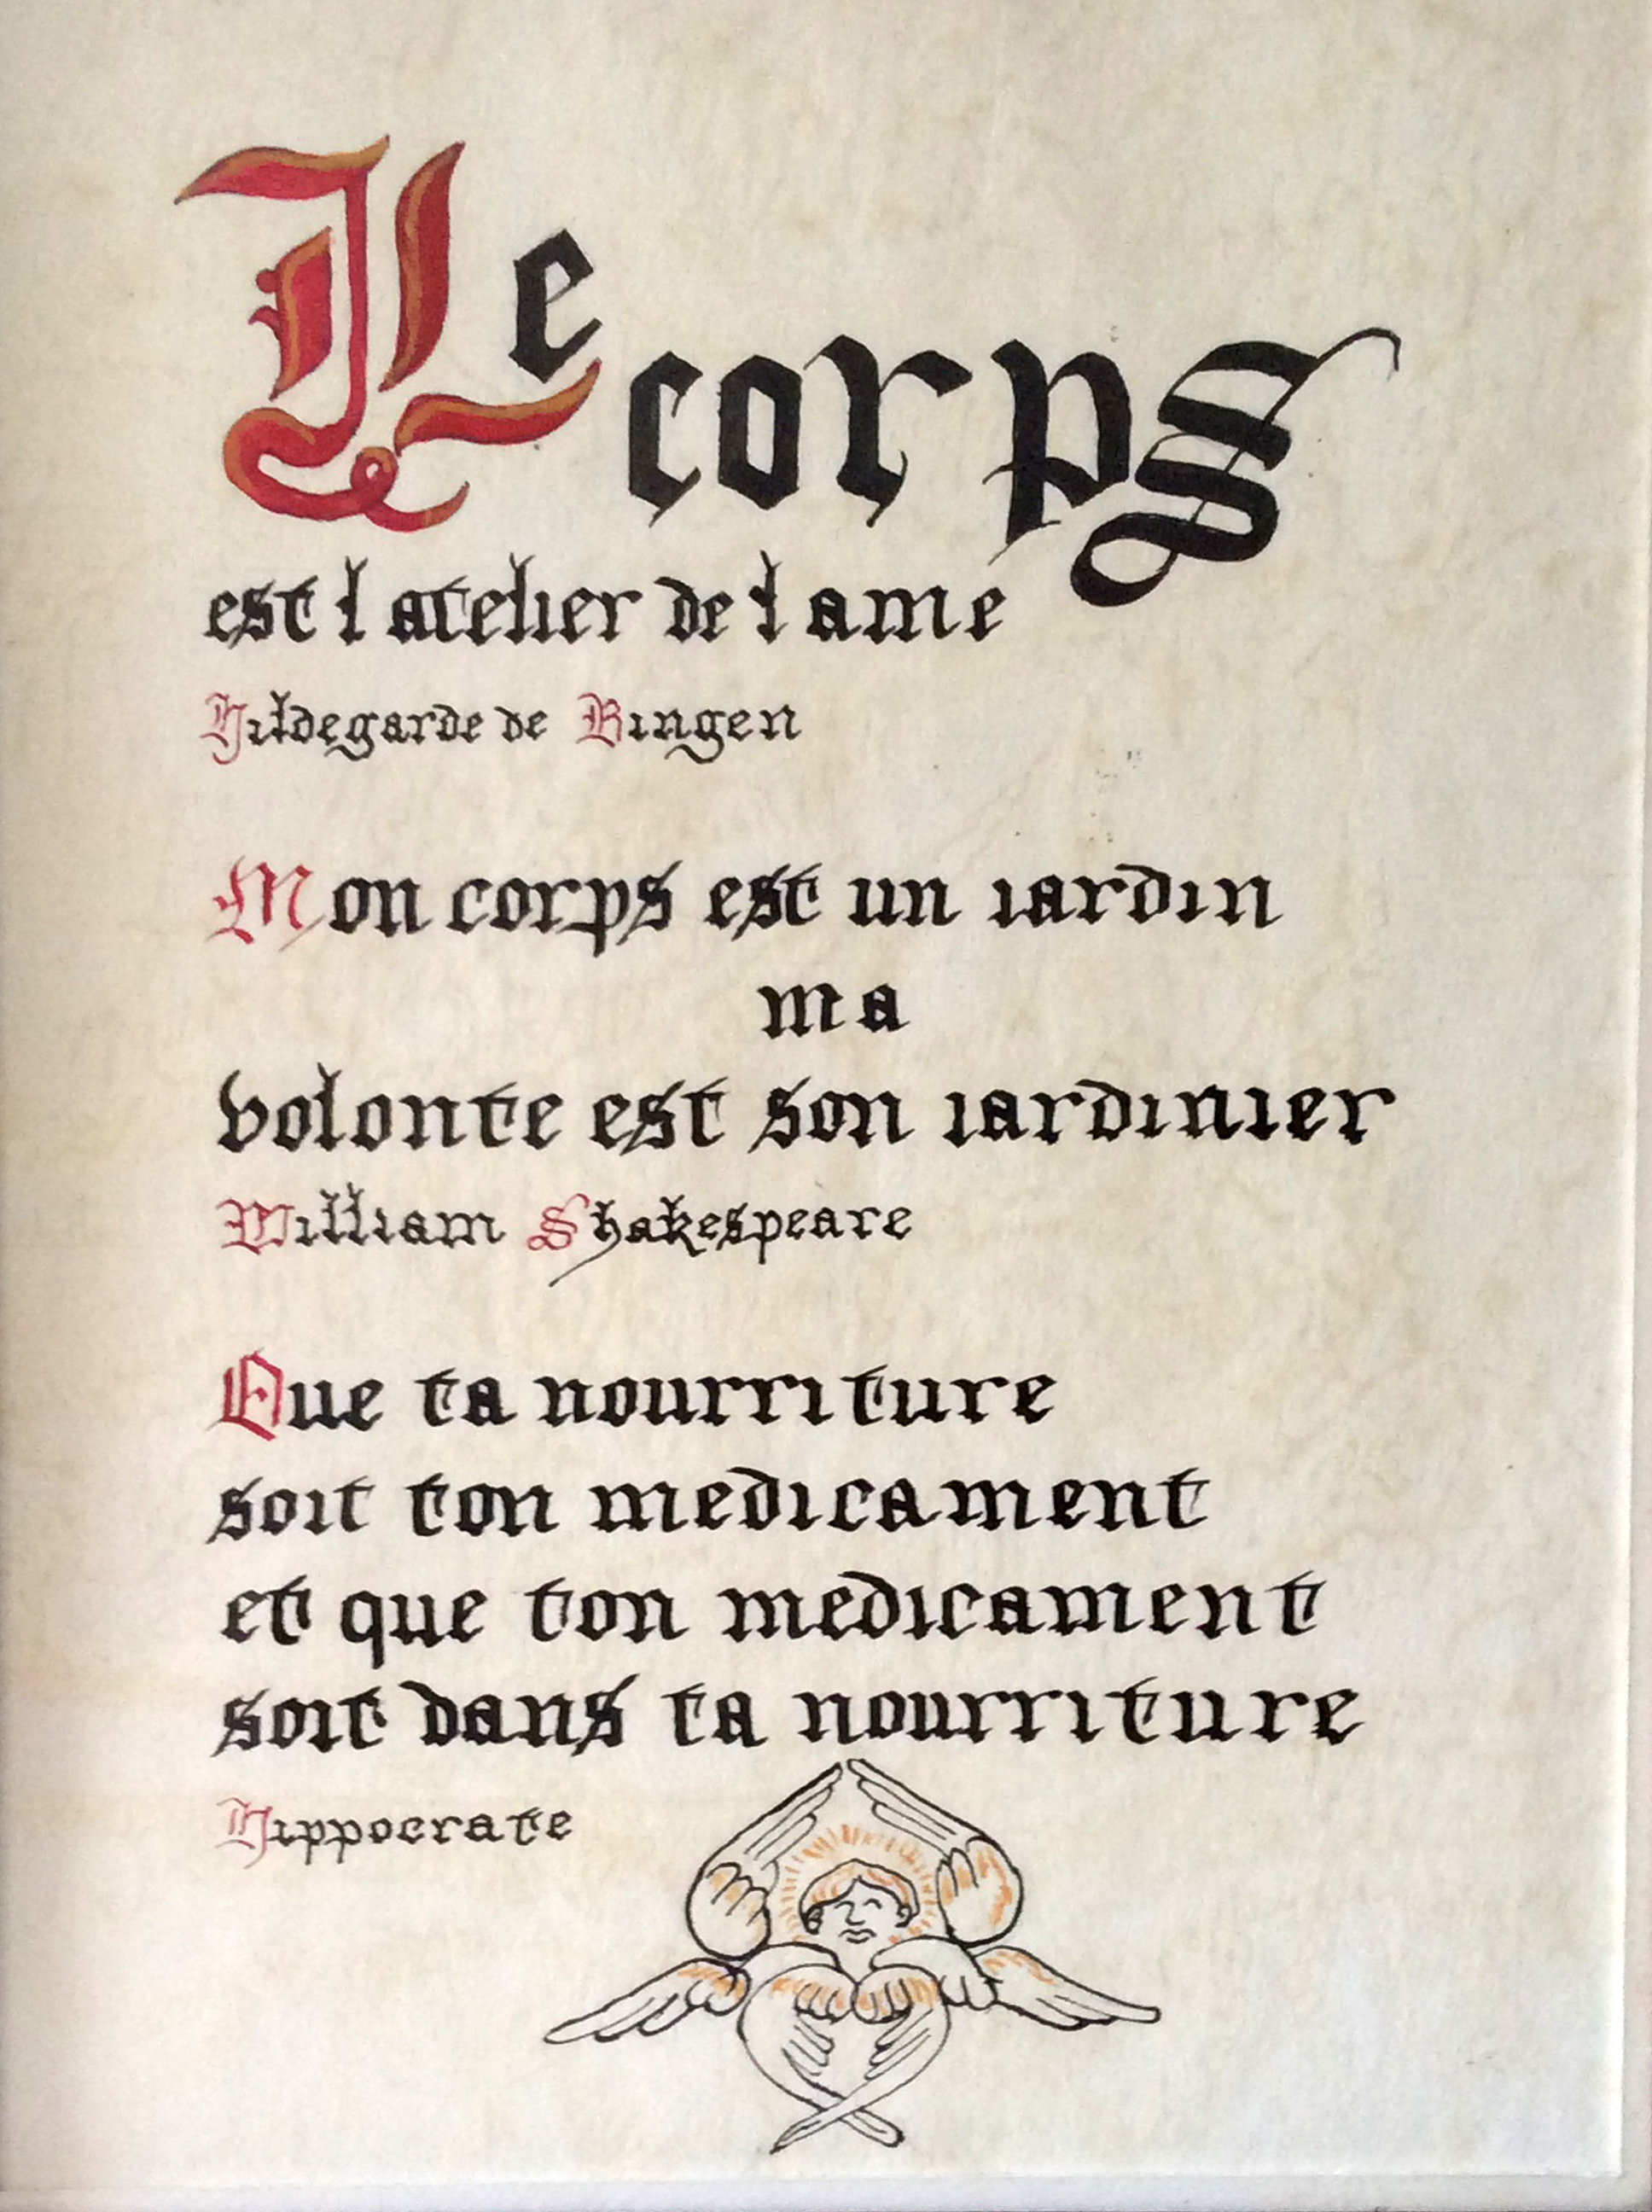 Le corps
est l atelier de l ame
Hildegarde de Bingen
Mon corps est un iardin
ma
volonte est son iardinier
William Shakespeare
Que ta nourriture
soit ton medicament
et que ton medicament
soit dans ta nourriture
Hippocrate